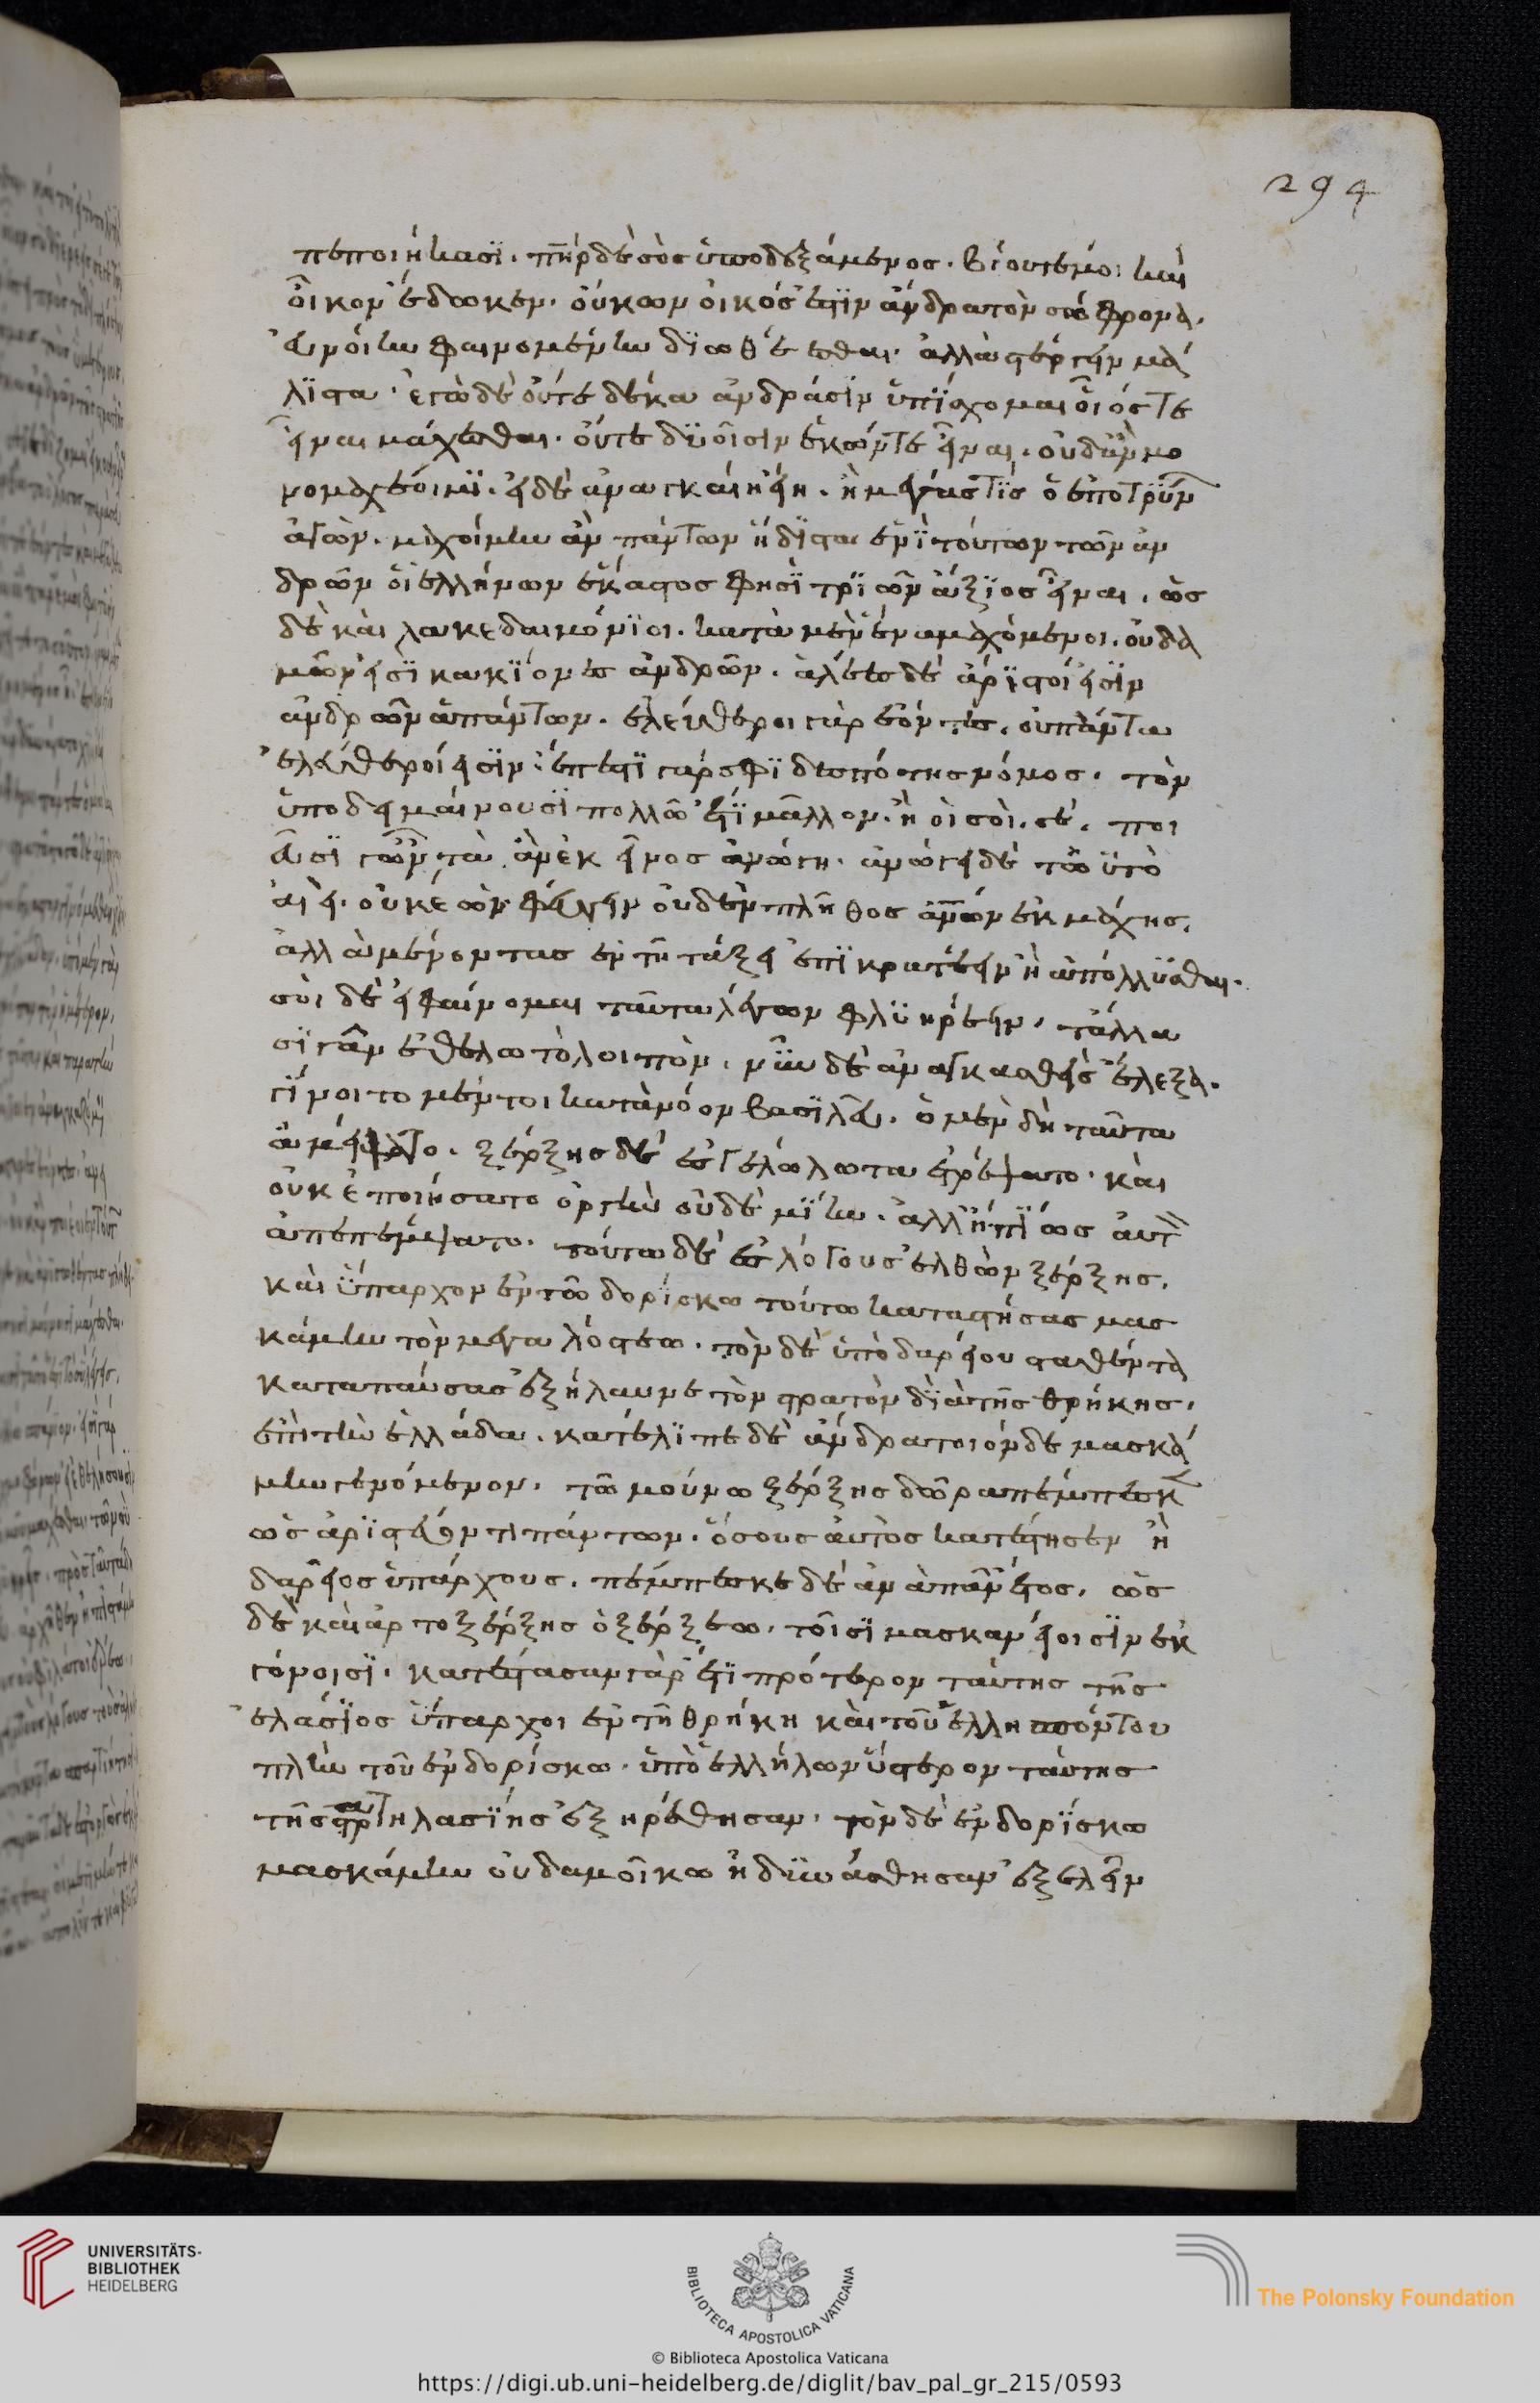 294
πεποιήκασι. πῆρ δὲ σὸς ὑποδεξάμενος. βίον τέ μοι καὶ
οἶκον ἔδωκεν. οὐκ ὦν οἰκός ἐστιν ἄνδρα τὸν σώφρονα.
εὐνοίην φαινομένην διωθέεσθαι. ἀλλὰ στέργειν μά
λιστα. ἐγὼ δὲ οὔτε δέκα ἀνδράσιν ὑπίσχομαι οἷός τε
εἶναι μάχεσθαι. οὔτε δυοῖσιν ἑκών τε εἶναι. οὐδ' ἂν μο
νομαχέοιμι. εἰ δὲ ἀναγκαίη εἴη. ἢ μέγας τις ὁ ἐποτρύνων
ἀγών. μαχοίμην ἂν πάντων ἥδιστα ἑνὶ τούτων τῶν ἀν
δρῶν οἳ ἑλλήνων ἕκαστος φησὶ τριῶν ἄξιος εἶναι. ὣς
δὲ καὶ λακεδαιμόνιοι. κατὰ μὲν ἕνα μαχόμενοι. οὐδα
μῶν εἰσι κακίονες ἀνδρῶν. ἁλέες δὲ ἄριστοί εἰσιν
ἀνδρῶν ἁπάντων. ἐλεύθεροι γὰρ ἐόντες. οὐ πάντα
ἐλεύθεροί εἰσιν. ἔπεστι γάρ σφι δεσπότης νόμος. τὸν
ὑποδειμαίνουσι πολλῷ ἔτι μᾶλλον. ἢ οἱ σοὶ. σέ. ποι
εῦσι γῶν τὰ ἂν ἐκεῖνος ἀνώγῃ. ἀνώγει δὲ τὠυτὸ
αἰεί. οὐκ ἐῶν φεύγειν οὐδὲν πλῆθος ἀνθρώπων ἐκ μάχης.
ἀλλὰ μένοντας ἐν τῇ τάξει ἐπικρατέειν ἢ ἀπόλλυσθαι.
σοὶ δὲ εἰ φαίνομαι ταῦτα λέγων φλυηρέειν. τἄλλα
σιγᾶν ἐθέλω τὸ λοιπόν. νῦν δὲ ἀναγκασθεὶς ἔλεξα.
γίνοιτο μέντοι κατὰ νόον βασιλεῦ. ὁ μὲν δὴ ταῦτα
ἀμείψατο. ξέρξης δὲ ἐς γέλωτα ἔτρεψατο. καὶ
οὐκ ἐποιήσατο ὀργὴν οὐδεμίην. ἀλλ' ἠπίως αὐτὸν
ἀπεπέμψατο. τούτῳ δὲ ἐς λόγους ἐλθὼν ξέρξης.
καὶ ὕπαρχον ἐν τῷ δορίσκῳ τούτῳ καταστήσας μασ
κάμην τὸν μεγαλόστεω. τὸν δὲ ὑπὸ δαρείου σταθέντα
καταπαύσας ἐξήλαυνε τὸν στρατὸν διὰ τῆς θρήκης.
ἐπὶ τὴν ἑλλάδα. κατέλιπε δὲ ἄνδρα τοιόνδε μασκά
μην γενόμενον. τῷ μούνῳ ξέρξης δῶρα πέμπεσκε
ὡς ἀριστεύοντι πάντων. ὅσους αὐτὸς κατέστησεν ἢ
δαρεῖος ὑπάρχους. πέμπεσκε δὲ ἀνὰ πᾶν ἔτος. ὣς
δὲ καὶ ἀρτοξέρξης ὁ ξέρξεω. τοῖσι μασκαμείοισιν ἐκ
γόνοισι. κατέστασαν γὰρ ἔτι πρότερον ταύτης τῆς
ἐλάσιος ὕπαρχοι ἐν τῇ θρήκῃ καὶ τοῦ ἑλλησπόντου
πλὴν τοῦ ἐν δορίσκῳ. ὑπὸ ἑλλήλων ὕστερον ταύτης
τῆς στρατηλασίης ἐξηρέθησαν. τὸν δὲ ἐν δορίσκῳ
μασκάμην οὐδαμοί κω ἠδυνάσθησαν ἐξελεῖν
UNIVERSITÄTS-
BIBLIOTHEK
HEIDELBERG
BIBLIOTECA APOSTOLICA VATICANA
The Polonsky Foundation
© Biblioteca Apostolica Vaticana
https://digi.ub.uni-heidelberg.de/diglit/bav_pal_gr_215/0593